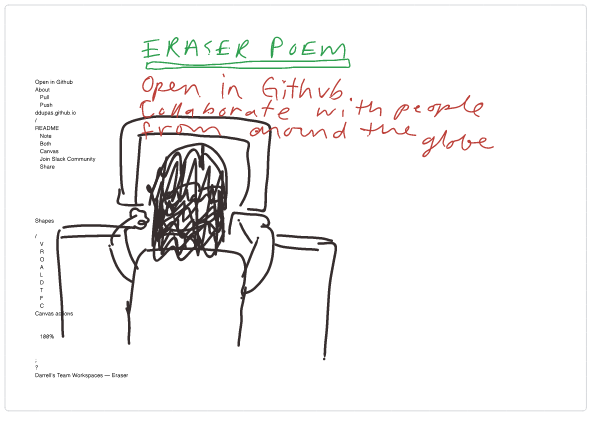 ERASER POEM
Open in Github.
Collaborate with people
from around the globe
Open in Github
About
Pull
Push
ddupas.github.io
/
README
Note
Both
Canvas
Join Slack Community
Share
Shapes
/
V
R
O
A
L
D
T
F
C
Canvas actions
100%
;
?
Darrell's Team Workspaces — Eraser